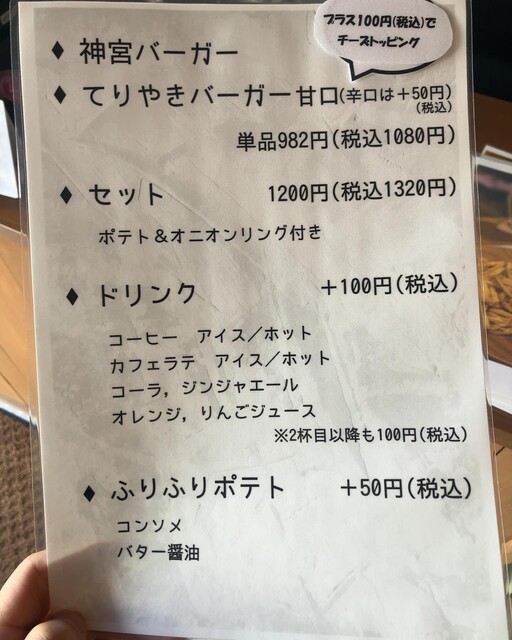 プラス100円(税込)で
チーズトッピング
♦ 神宮バーガー
♦ てりやきバーガー甘口(辛口は＋50円)
(税込)
単品982円(税込1080円)
♦ セット 1200円(税込1320円)
ポテト＆オニオンリング付き
♦ ドリンク ＋100円(税込)
コーヒー アイス／ホット
カフェラテ アイス／ホット
コーラ, ジンジャエール
オレンジ, りんごジュース
※2杯目以降も100円(税込)
♦ ふりふりポテト ＋50円(税込)
コンソメ
バター醤油